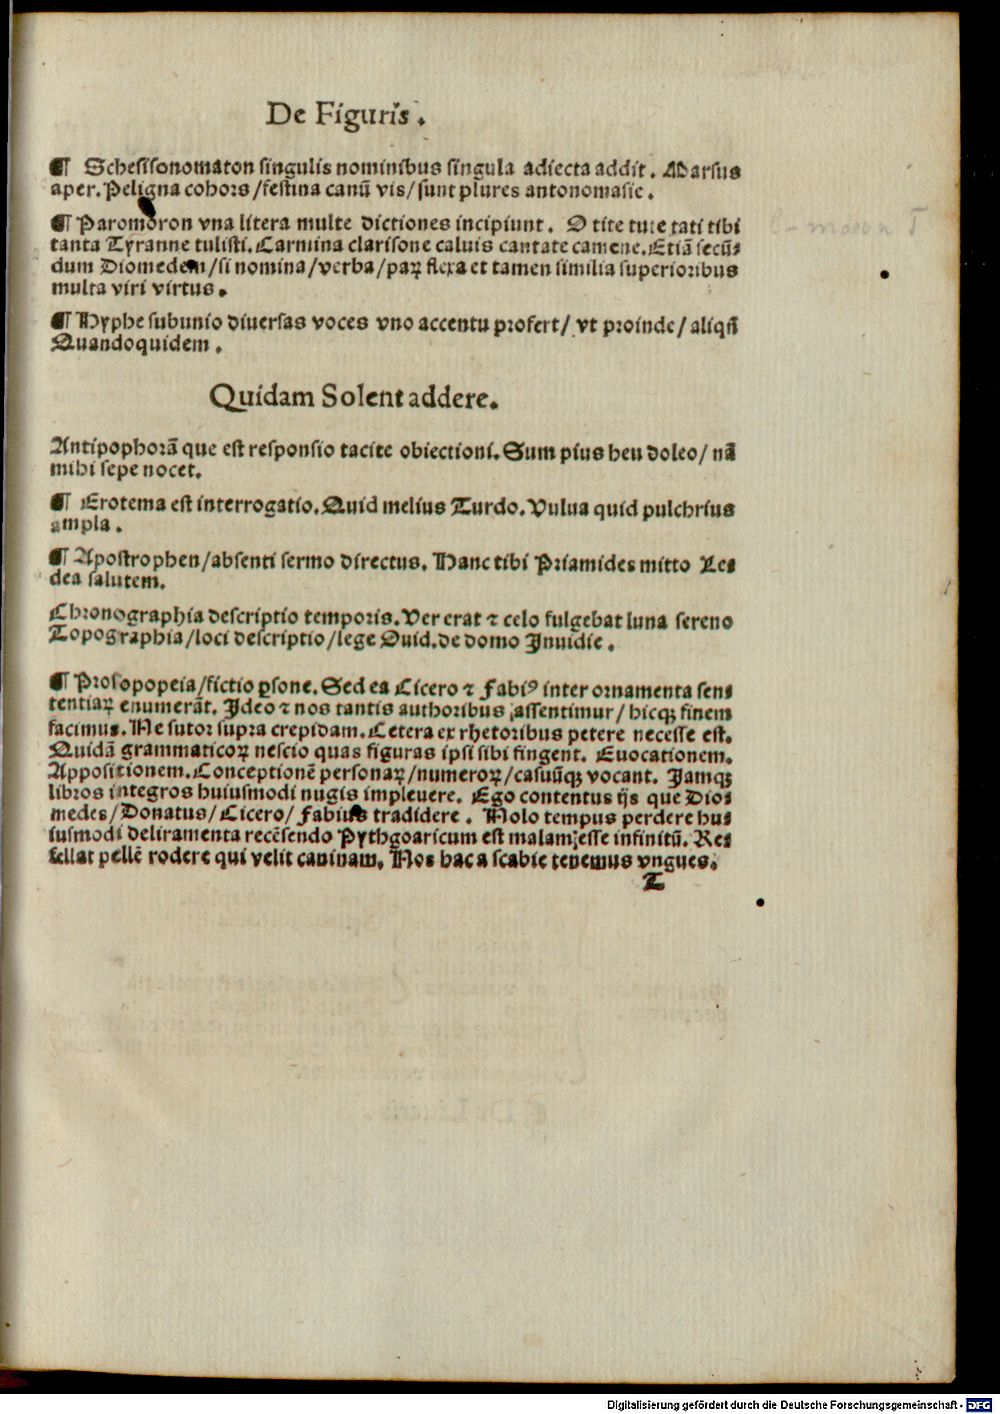 De Figuris.
¶ Schesisonomaton singulis nominibus singula adiecta addit. Marsus
aper. Peligna cohors/festina canū vis/sunt plures antonomasie.
¶ Paromoron vna litera multe dictiones incipiunt. O tite tute tati tibi
tanta Tyranne tulisti. Carmina clarisone caluis cantate camene. Etiā secū⸗
dum Diomedem/si nomina/verba/paꝝ flexa et tamen similia superioribus
multa viri virtus.
¶ Hyphe subunio diuersas voces vno accentu profert/ vt proinde/ aliqñ
Quandoquidem.
Quidam Solent addere.
Antipophorā que est responsio tacite obiectioni. Sum pius heu doleo/ nā
mihi sepe nocet.
¶ Erotema est interrogatio. Quid melius Turdo. Vulua quid pulchrius
ampla.
¶ Apostrophen/absenti sermo directus. Hanc tibi Priamides mitto Le⸗
dea salutem.
Chronographia descriptio temporis. Ver erat ⁊ celo fulgebat luna sereno
Topographia/loci descriptio/lege Ouid. de domo Inuidie.
¶ Prosopopeia/fictio ꝑsone. Sed ea Cicero ⁊ Fabiꝰ inter ornamenta sen⸗
tentiaꝝ enumerāt. Ideo ⁊ nos tantis authoribus assentimur/ hicqꝫ finem
facimus. Ne sutor supra crepidam. Cetera ex rhetoribus petere necesse est.
Quidā grammaticoꝝ nescio quas figuras ipsi sibi fingent. Euocationem.
Appositionem. Conceptionē personaꝝ/numeroꝝ/casuūqꝫ vocant. Iamqꝫ
libros integros huiusmodi nugis impleuere. Ego contentus ijs que Dio⸗
medes/Donatus/Cicero/Fabius tradidere. Nolo tempus perdere hu⸗
iusmodi deliramenta recēsendo Pythgoaricum est malam esse infinitū. Re⸗
fellat pellē rodere qui velit caninam. Nos hac a scabie tenemus vngues.
T
Digitalisierung gefördert durch die Deutsche Forschungsgemeinschaft - DFG